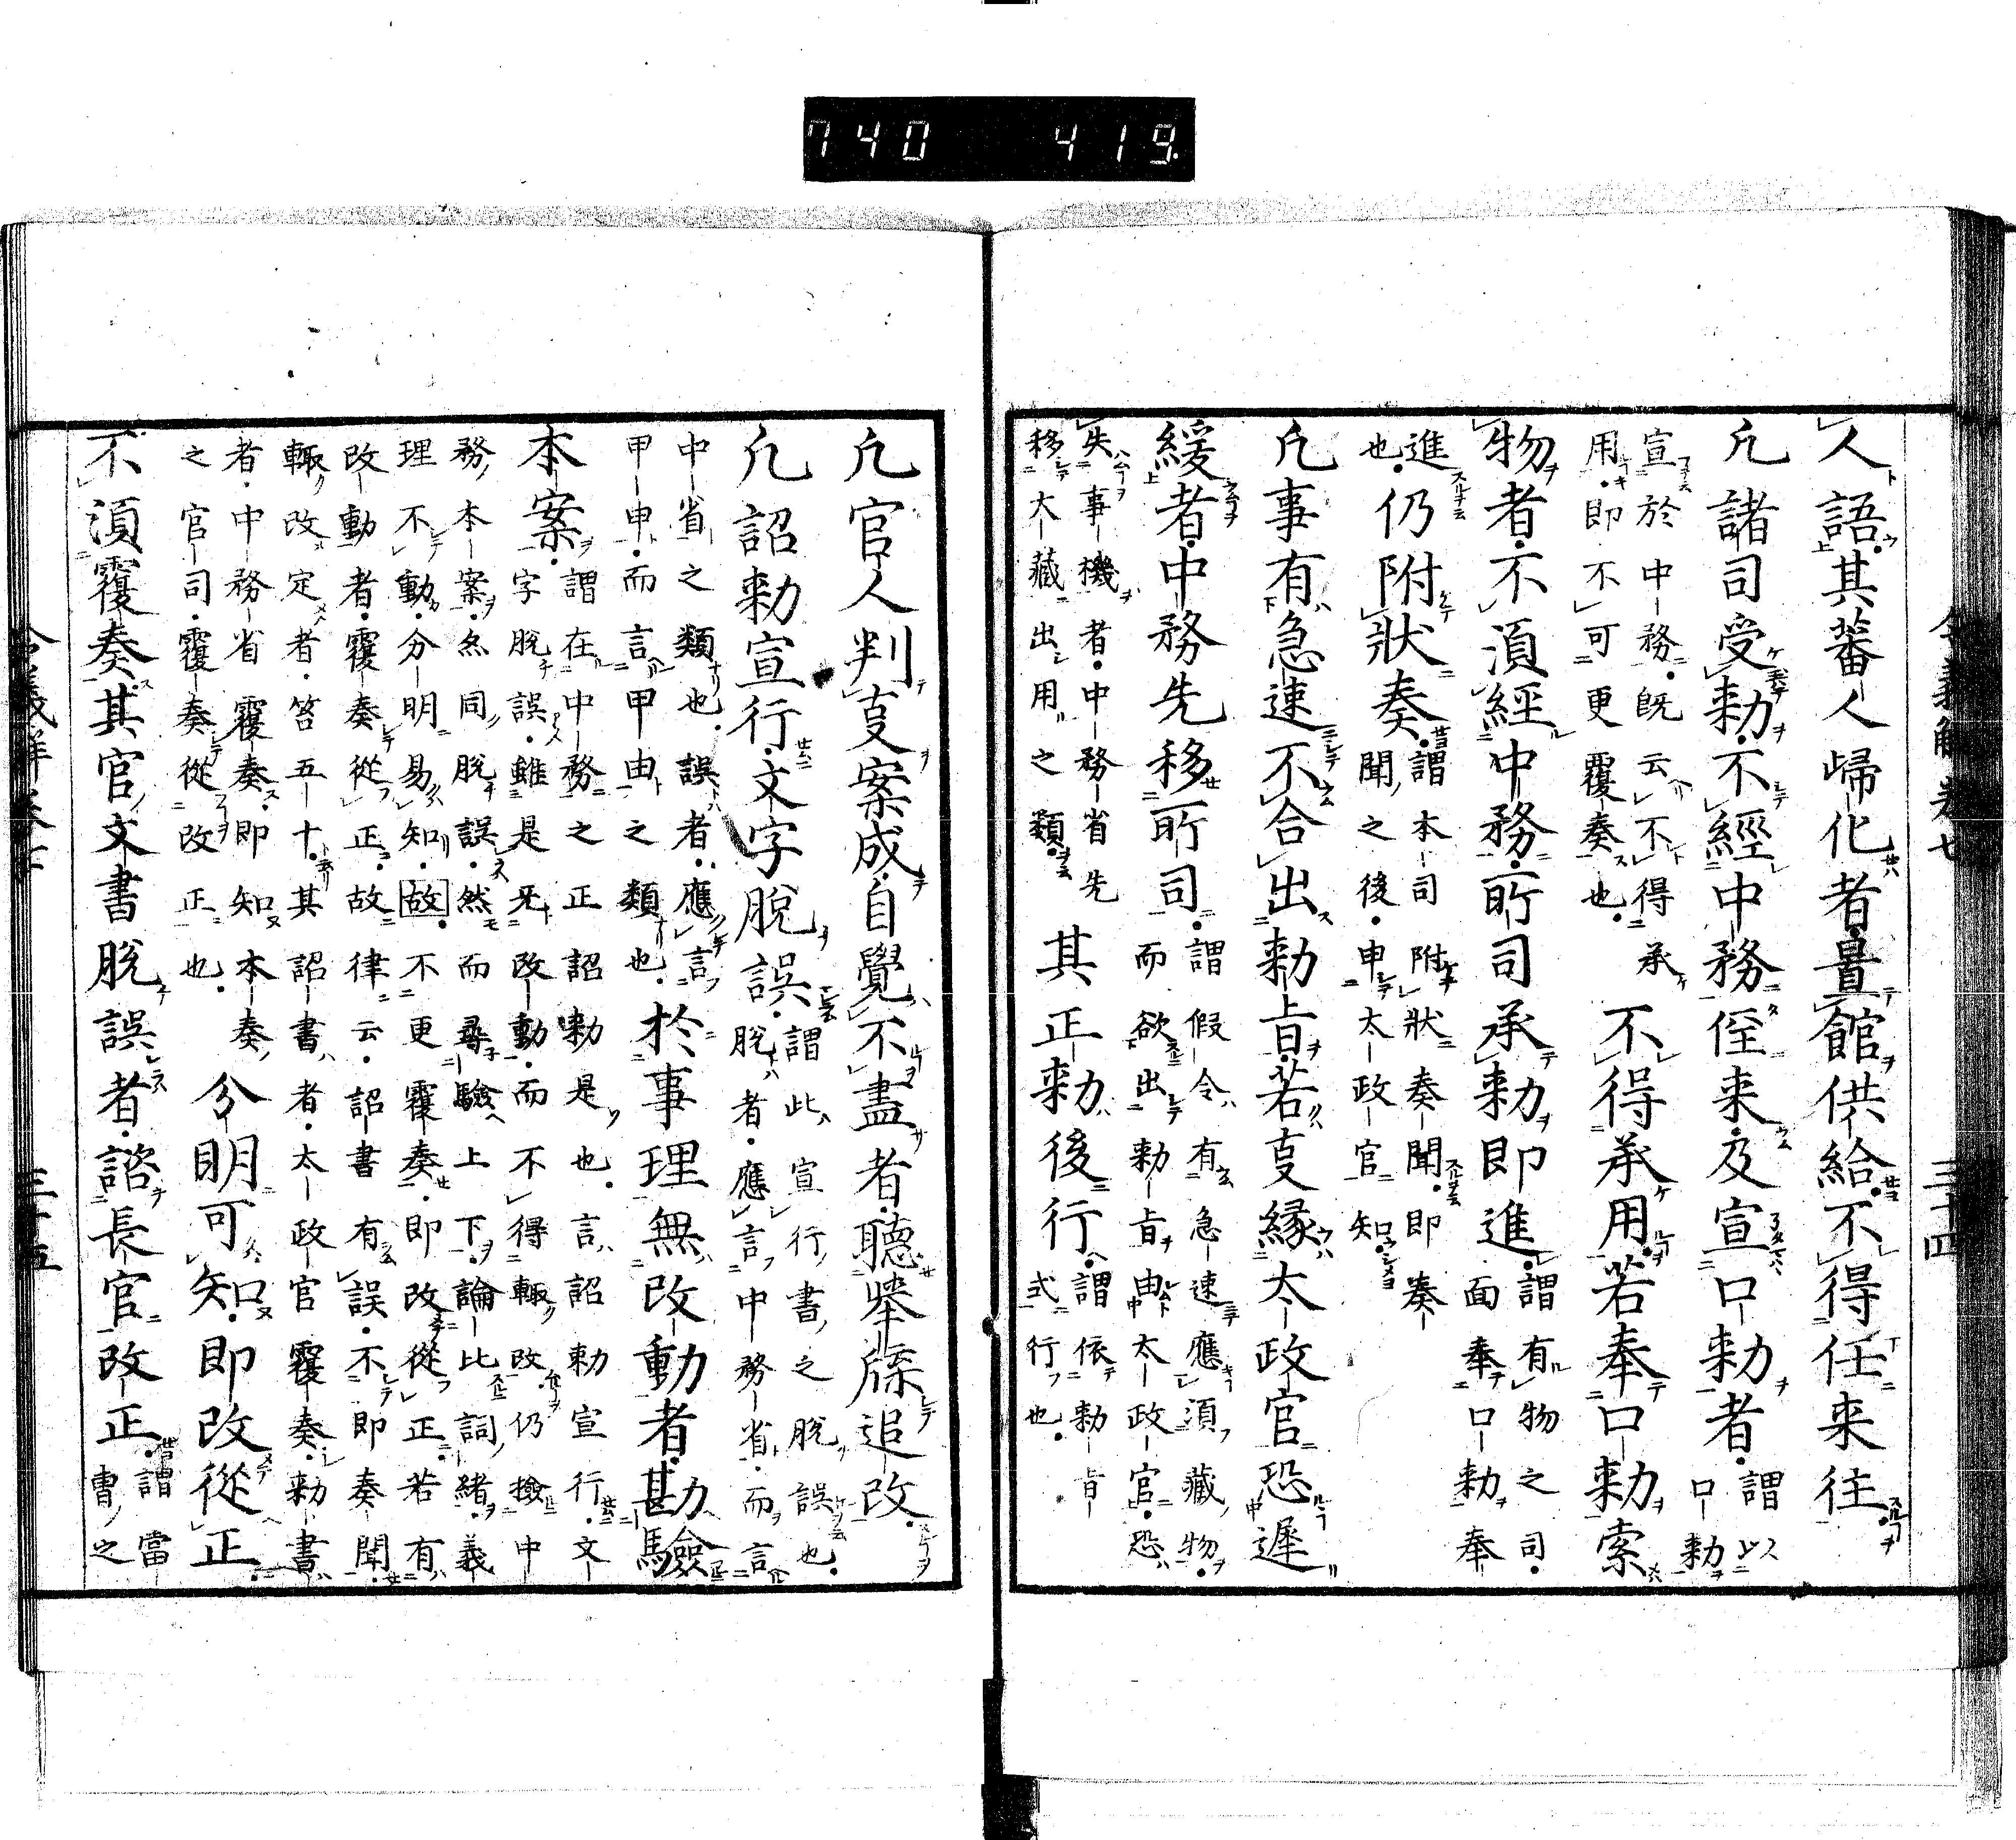 740 419
人語其蕃人歸化者量館供給不得任来往
凡諸司受勅不經中務俓来及宣口勅者謂口勅
宣於中務既云不得承
用即不可更覆奏也
不得承用若奉口勅索
物者不須經中務所司承勅即進謂有物之司
面奉口勅奉
進也仍附狀奏謂本司附狀奏聞即奏
聞之後申太政官知
凡事有急速不合出勅旨若㕝縁太政官恐遲
緩者中務先移所司謂假令有急速應須藏物
而欲出勅旨由太政官恐
失事機者中務省先
移大藏出用之類
其正勅後行謂依勅旨
式行也
凡官人判㕝案成自覺不盡者聽舉牒追改
凡詔勅宣行文字脫誤謂此宣行書之脫誤也
脫者應言中務省而言
中省之類也誤者應言
甲申而言甲由之類也
於事理無改動者勘驗
本案謂在中務之正詔勅是也言詔勅宣行文
字脫誤雖是无改動而不得輙改仍撿中
務本案然同脫誤然而尋驗上下論比詞緒義
理不動分明易知故不更覆奏即改從正若有
改動者覆奏從正故律云詔書有誤不即奏聞
輙改定者笞五十其詔書者太政官覆奏勅書
者中務省覆奏即知本奏
之官司覆奏從改正也
分明可知即改從正
不須覆奏其官文書脫誤者諮長官改正謂當
曹之
令義解卷七
三十四
三十五